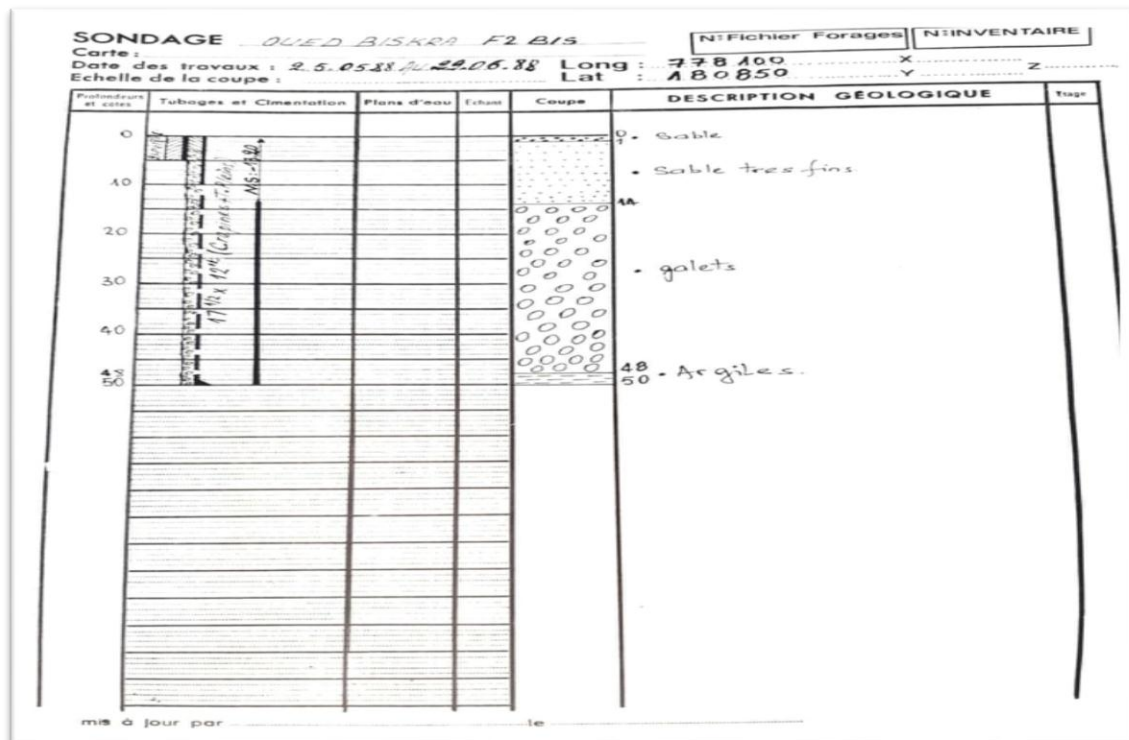 SONDAGE OUED BISKRA F2 BIS
N: Fichier Forages N: INVENTAIRE
Carte :
Date des travaux : 25.0588 au 29.06.88 Long : 778 100 X Z
Echelle de la coupe : Lat : 180850 Y
Profondeurs et cotes Tubages et Cimentation Plans d'eau Echant Coupe DESCRIPTION GÉOLOGIQUE Etage
0 0 • Sable
1
NS:-13.20
• Sable tres fins
10
14
17 1/2 x 12"
20
• galets
30
40
48 48
50 50 • Argiles.
mis à jour par le